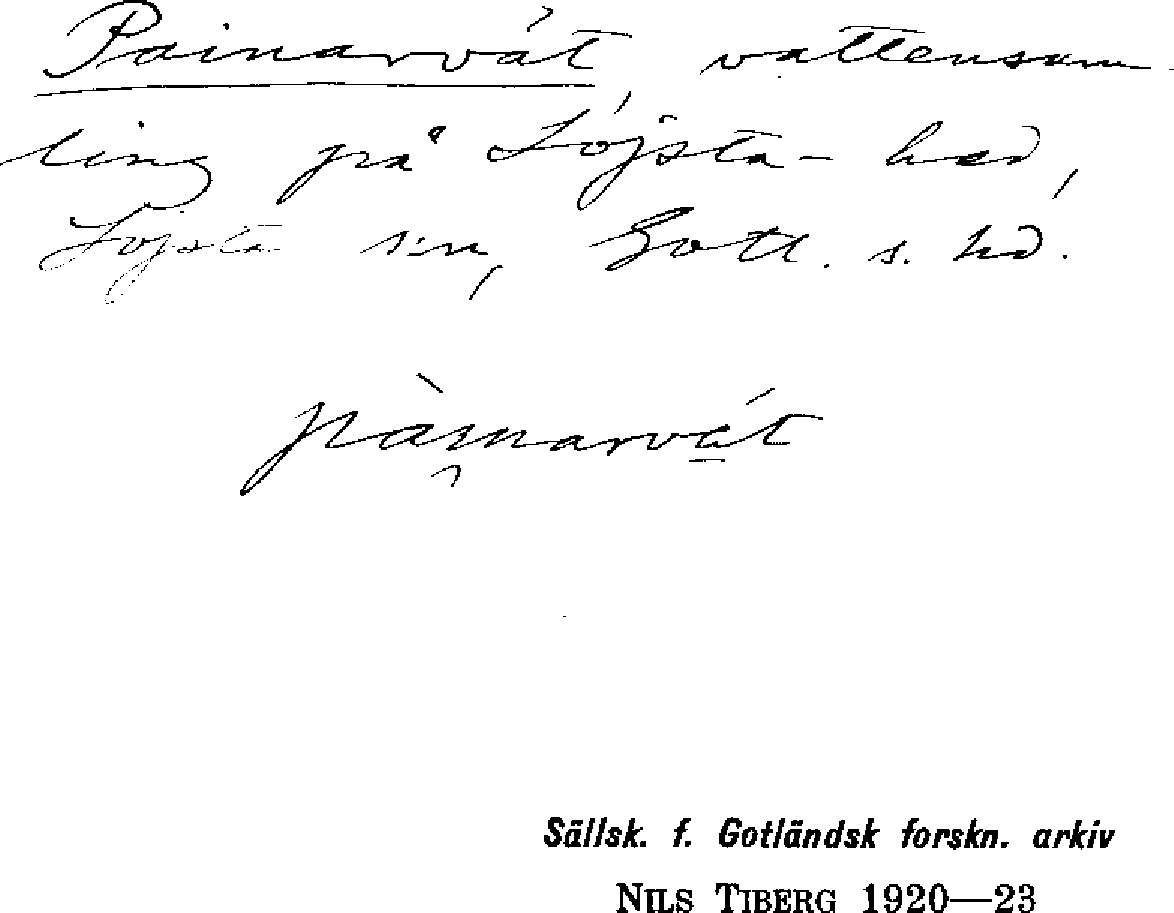 Painarvát, vattensam-
ling på Löjsta-hed,
Lojsta s:n, Gotl. s. hd.
pàinarvát
Sällsk. f. Gotländsk forskn. arkiv
NILS TIBERG 1920—23